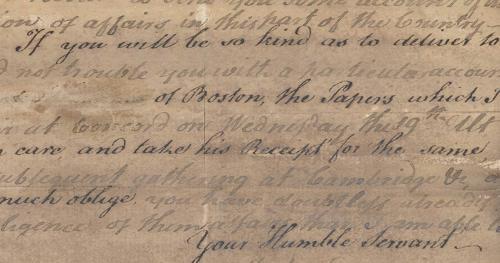 ion of affairs in this part of the Country
If you will be so kind as to deliver to
d not trouble you with a particular accoun
of Boston, the Papers which I
at Concord on Wednesday the 19th Ult
n care and take his Receipt for the same
ubsequent gathering at Cambridge &c, a
much oblige you have doubtless already
lligence of them a fair than I am able t
Your Humble Servant